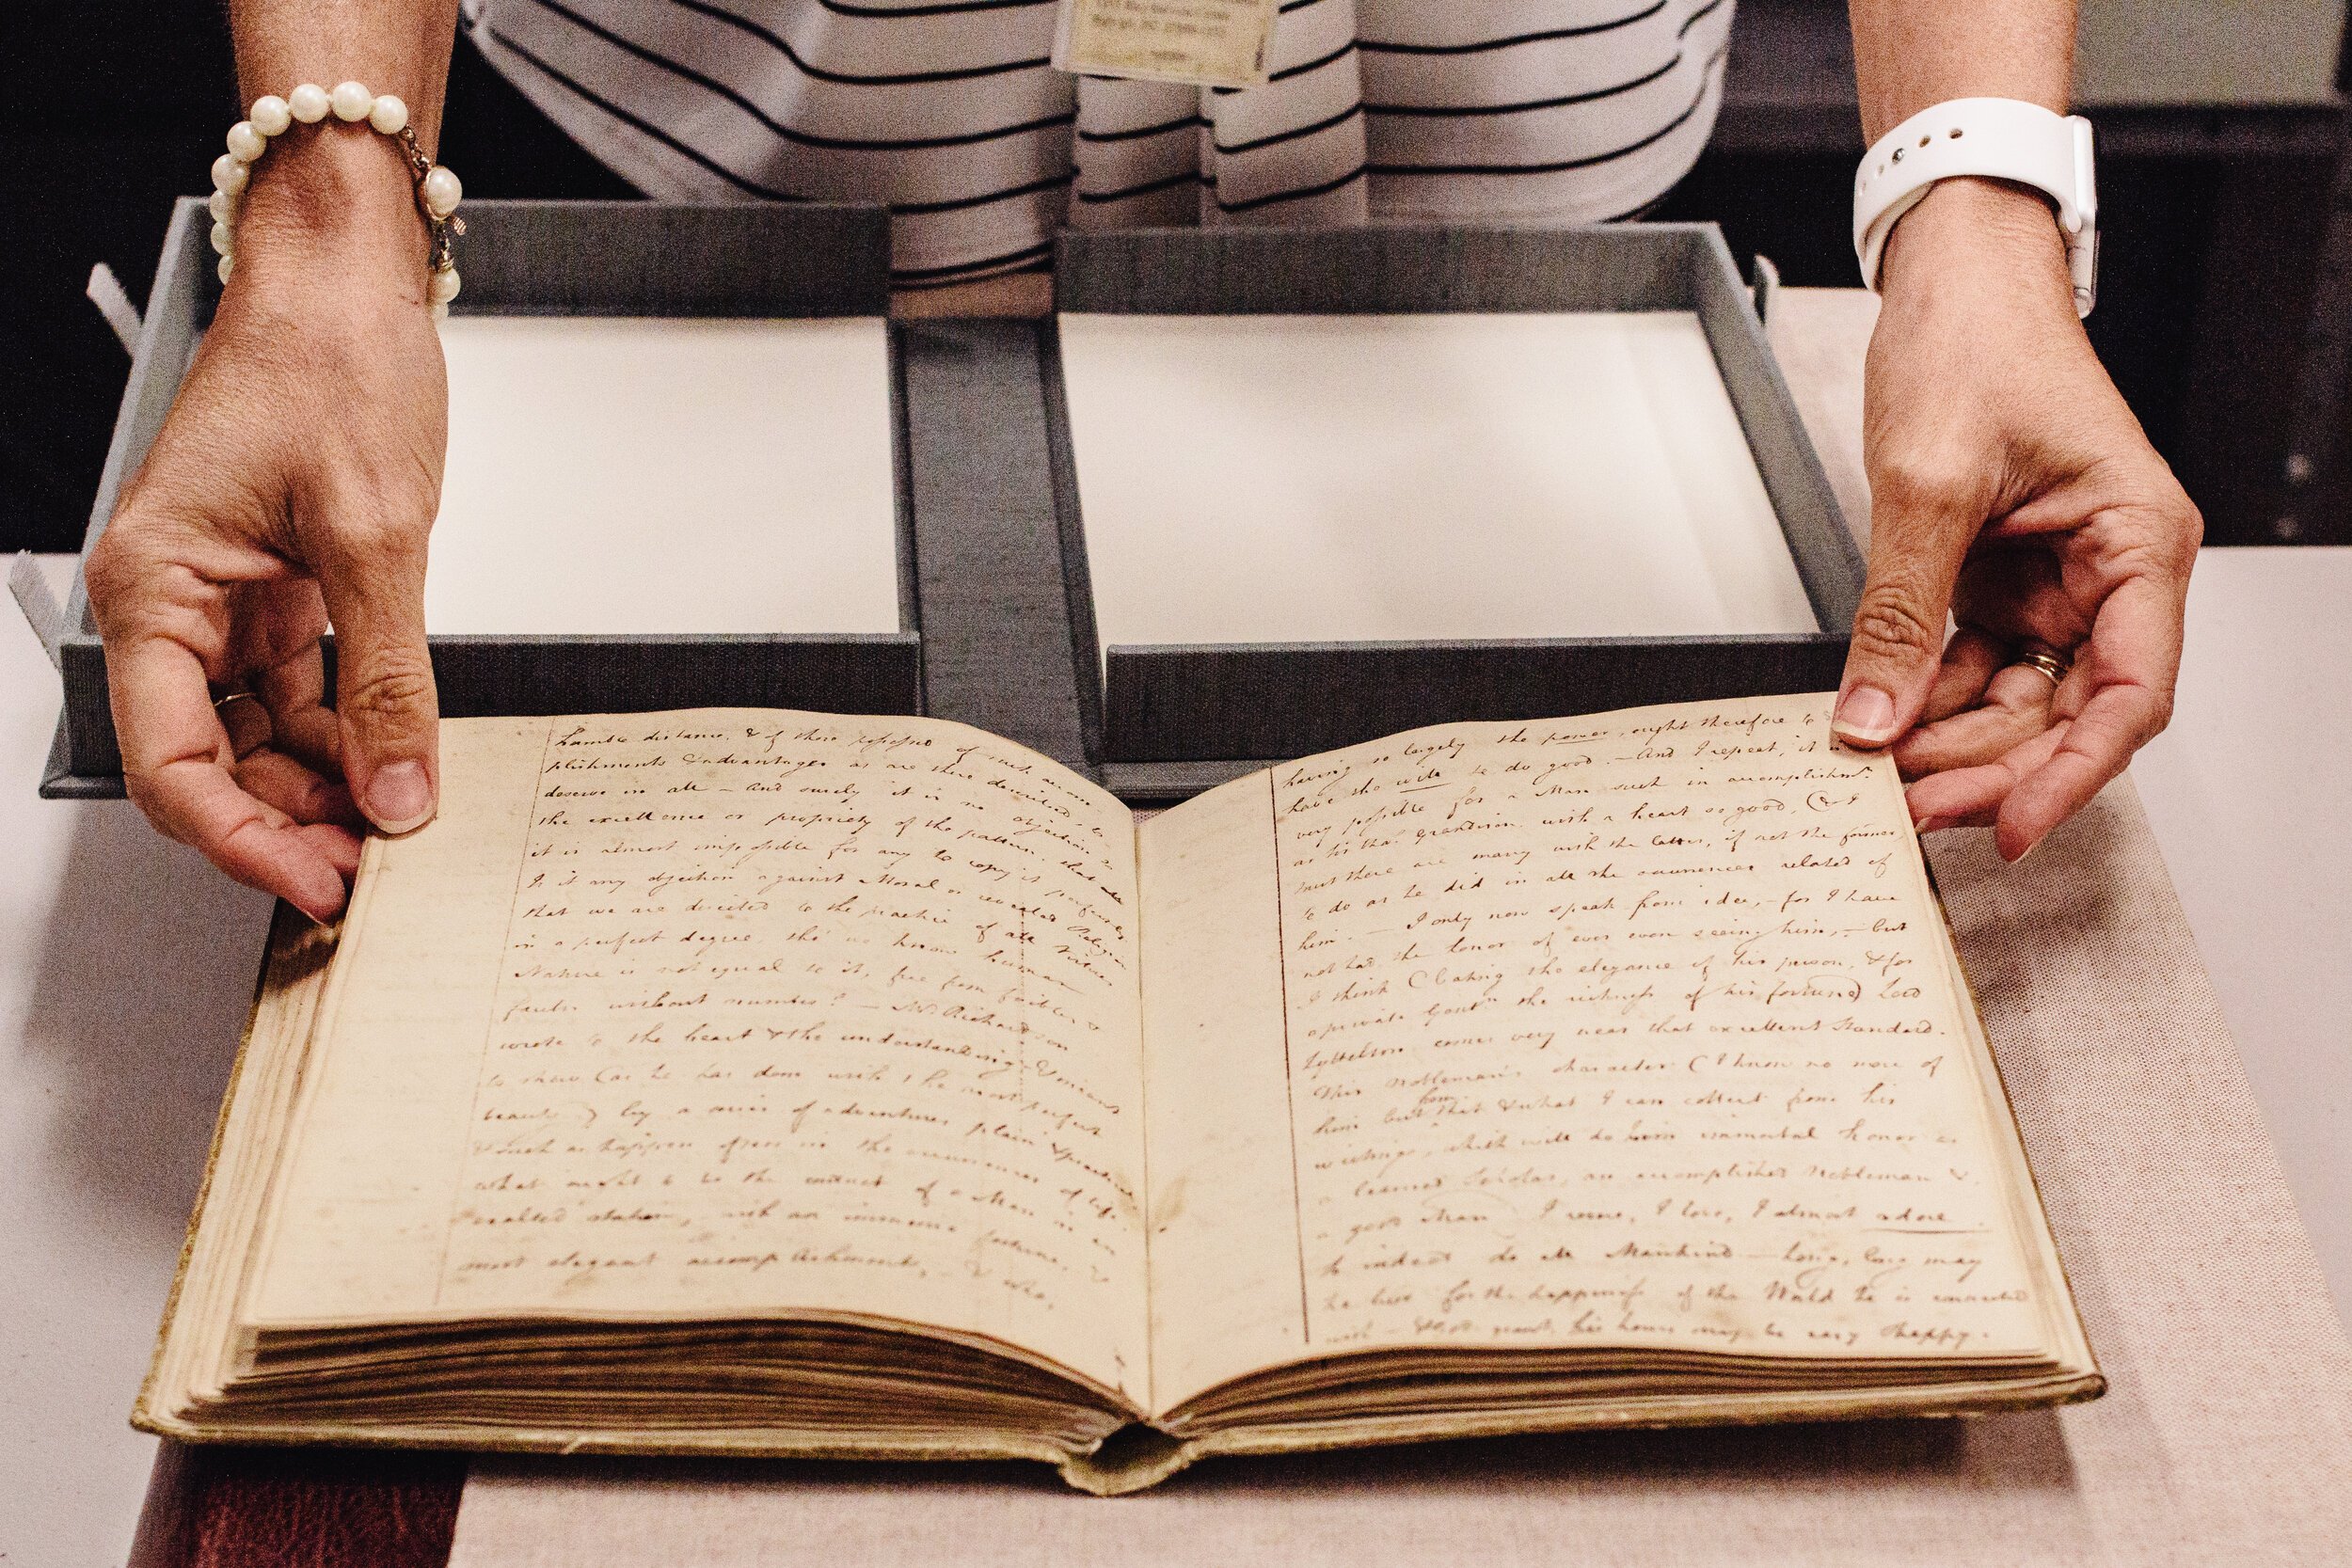 humble distance, & of those possess'd of such accom-
plishments & advantages as are there described, to
deserve in all — and surely it is no objection to
the excellence or propriety of the pattern, that
it is almost impossible for any to copy it perfectly
Is it any objection against Moral or revealed Religion
that we are directed to the practice of all Virtues
in a perfect degree, tho' we know human
Nature is not equal to it, free from foibles &
faults without number? — Mr. Richardson
wrote to the heart & the understanding & means
to shew (as he has done with the most perfect
beauty) by a series of adventures plain &
& such as happen often in the occurrences of life,
what ought to be the conduct of a Man in an
exalted station, with an immense fortune, &
most elegant accomplishments, — & who,
having so largely the power, ought therefore to
have the will to do good. — And I repeat, it is
very possible for a Man such in accomplishmts.
as is that Grandison, with a heart so good, (& I
trust there are many with the latter, if not the former)
to do as he did in all the occurrences related of
him. — I only now speak from idea, — for I have
not had the honor of ever even seeing him, — but
I think (baking the elegance of his person, & for
a private Gentn. the richness of his fortune) Lord
Lyttelton comes very near that excellent Standard.
This Nobleman's character (I know no more of
him but from that & what I can collect from his
writings, which will do him immortal honor as
a learned Scholar, an accomplished Nobleman &
a good Man) I revere, I love, I almost adore.
So indeed do all Mankind — long, long may
he live for the happiness of the World he is connected
with — & that his hours may be very happy.